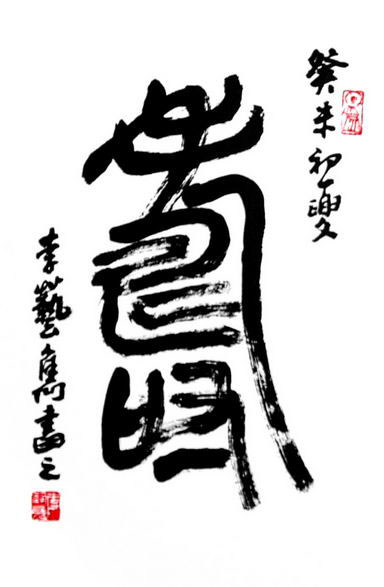 癸未初夏
壽
李藝雋書之